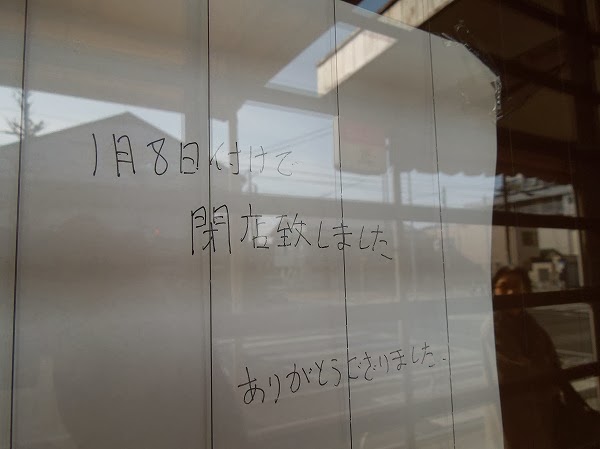 1月8日付けで
閉店致しました
ありがとうございました.